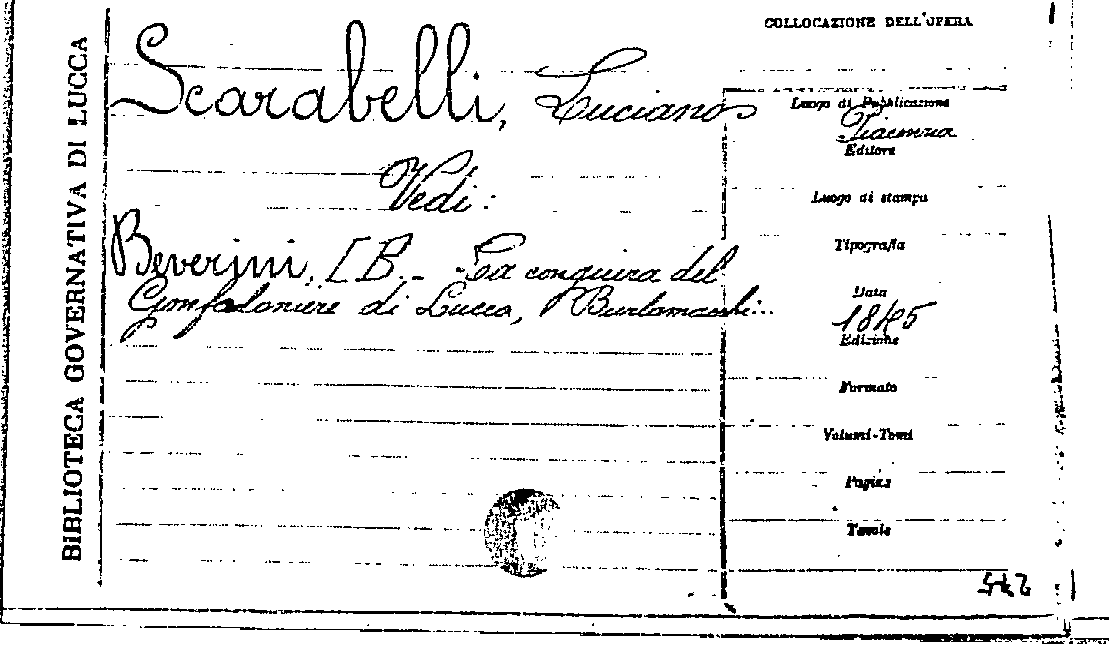 BIBLIOTECA GOVERNATIVA DI LUCCA
COLLOCAZIONE DELL'OPERA
Scarabelli, Luciano
Vedi:
Beverini, [B. - La congiura del
Gonfaloniere di Lucca, Burlamacchi...
Luogo di Pubblicazione
Piacenza
Editore
Luogo di stampa
Tipografia
Data
1845
Edizione
Formato
Volumi-Tomi
Pagine
Tavole